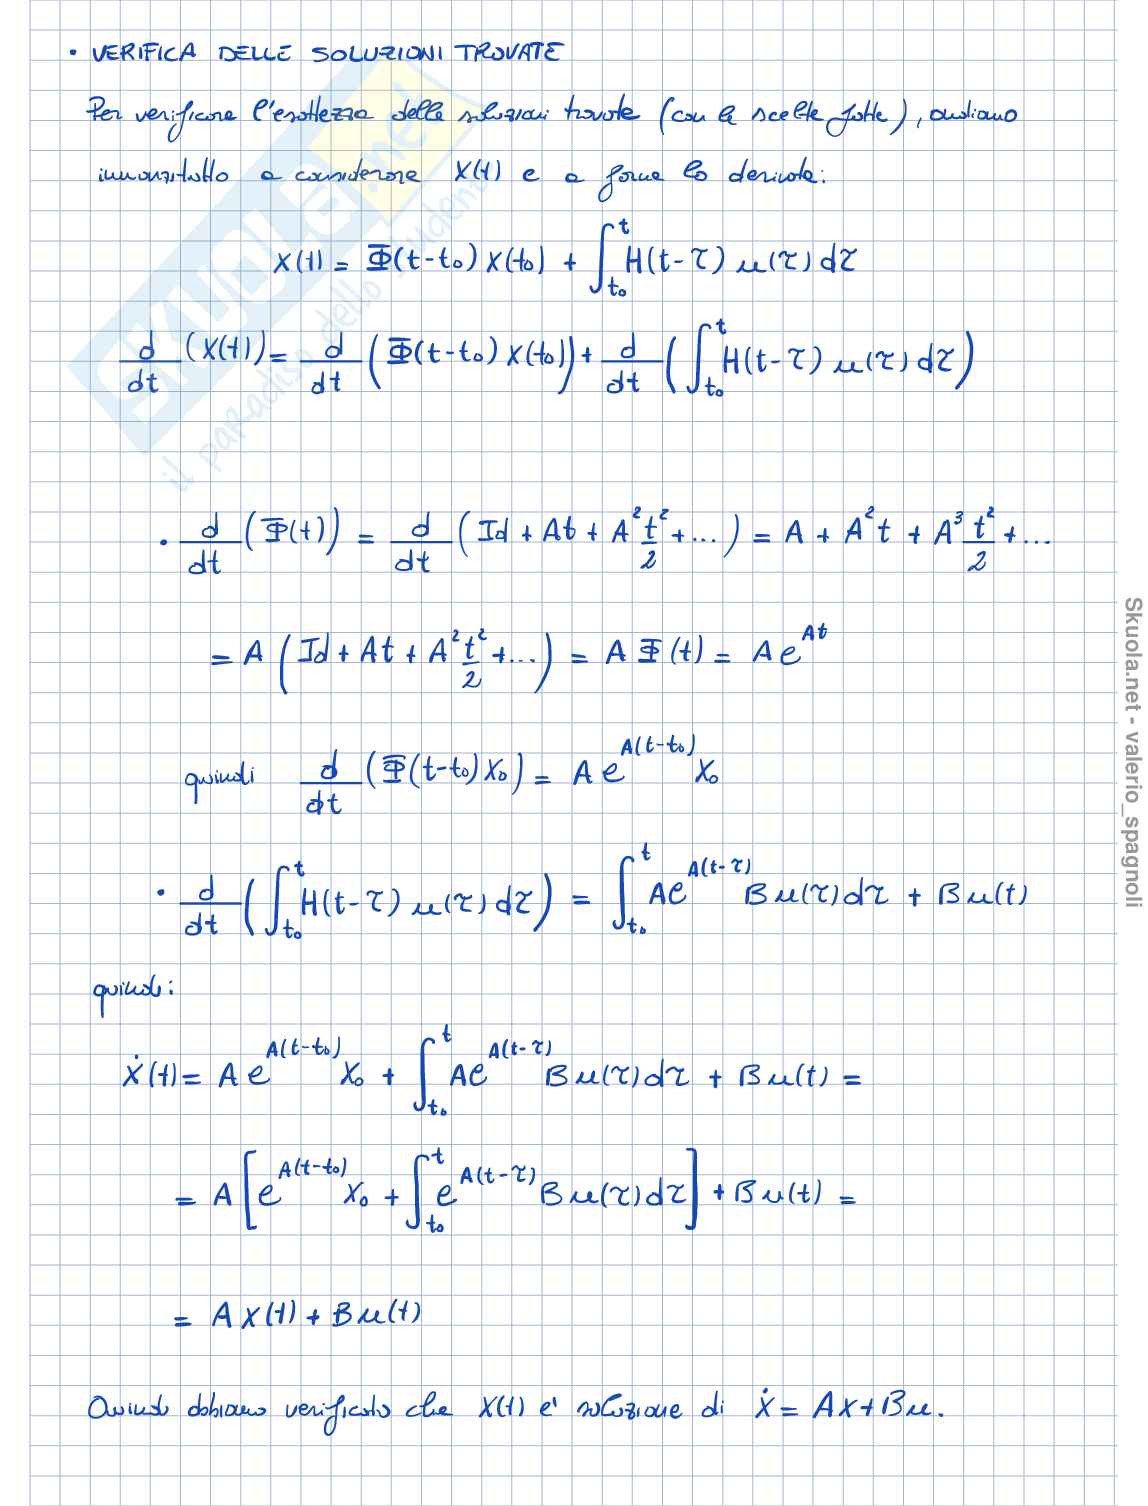 • VERIFICA DELLE SOLUZIONI TROVATE
Per verificare l'esattezza delle soluzioni trovate (con le scelte fatte), andiamo
innanzitutto a considerare X(t) e a farne la derivata:
X(t) = Φ(t-t₀) X(t₀) + ∫_{t₀}^{t} H(t-τ) u(τ) dτ
d/dt (X(t)) = d/dt (Φ(t-t₀) X(t₀)) + d/dt (∫_{t₀}^{t} H(t-τ) u(τ) dτ)
• d/dt (Φ(t)) = d/dt (Id + At + A² t²/2 + ...) = A + A²t + A³ t²/2 + ...
= A (Id + At + A² t²/2 + ...) = A Φ(t) = A e^{At}
quindi d/dt (Φ(t-t₀) X₀) = A e^{A(t-t₀)} X₀
• d/dt (∫_{t₀}^{t} H(t-τ) u(τ) dτ) = ∫_{t₀}^{t} A e^{A(t-τ)} B u(τ) dτ + B u(t)
quindi:
Ẋ(t) = A e^{A(t-t₀)} X₀ + ∫_{t₀}^{t} A e^{A(t-τ)} B u(τ) dτ + B u(t) =
= A [e^{A(t-t₀)} X₀ + ∫_{t₀}^{t} e^{A(t-τ)} B u(τ) dτ] + B u(t) =
= A X(t) + B u(t)
Quindi abbiamo verificato che X(t) e' soluzione di Ẋ = AX + Bu.
SKUOLA.net
il paradiso dello studente
Skuola.net - valerio_spagnoli